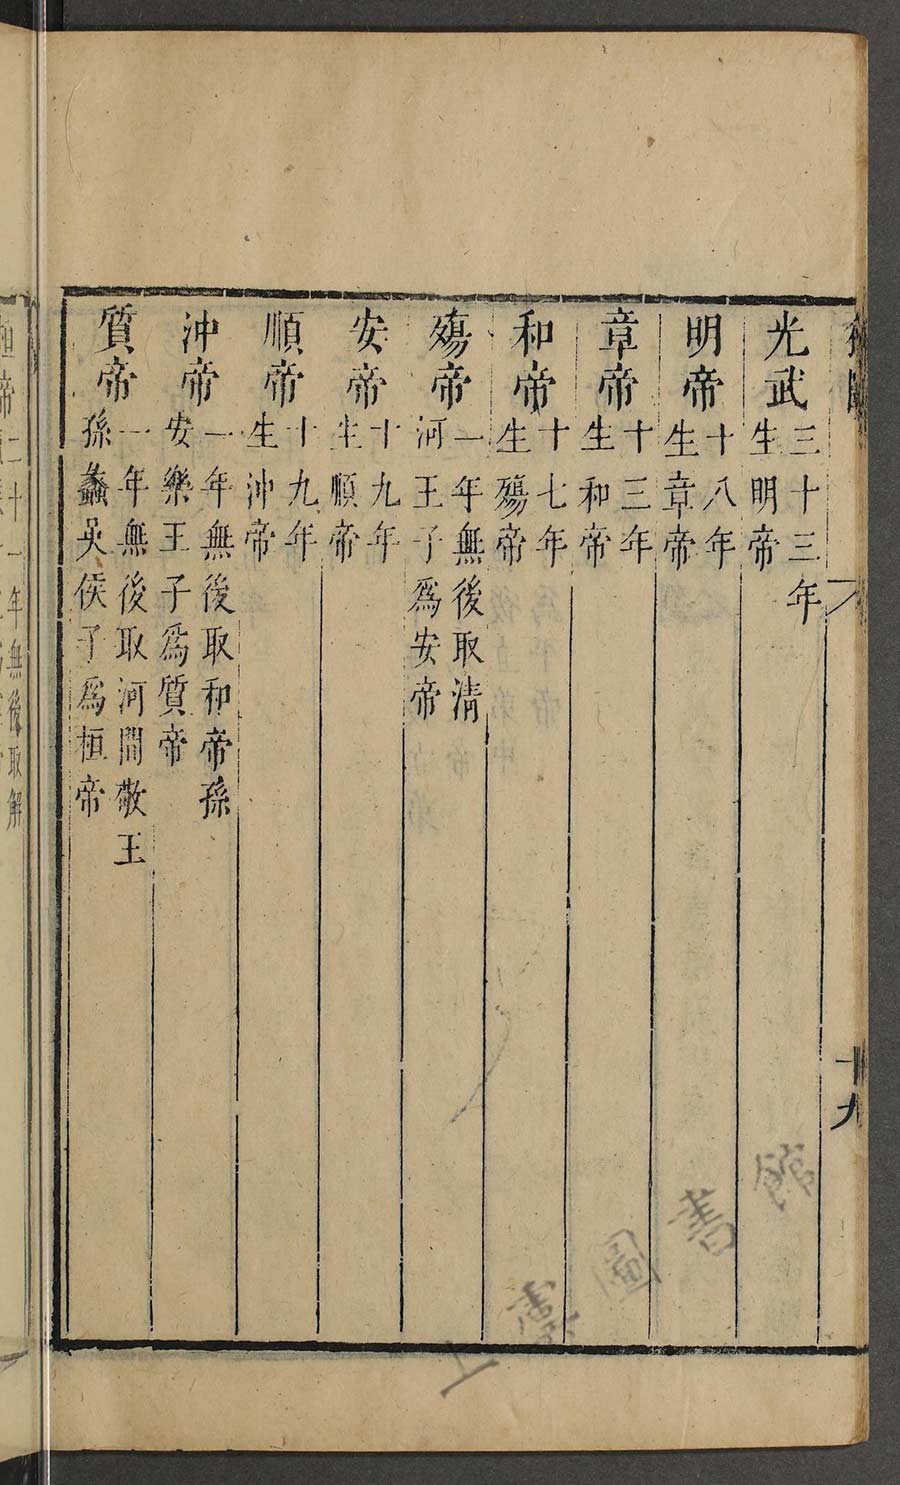 十九
光武 三十三年
生明帝
明帝 十八年
生章帝
章帝 十三年
生和帝
和帝 十七年
生殤帝
殤帝 一年無後取淸
河王子爲安帝
安帝 十九年
生順帝
順帝 十九年
生沖帝
沖帝 一年無後取和帝孫
安樂王子爲質帝
質帝 一年無後取河間敬王
孫蠡吳侯子爲桓帝
二十一年無後取解
圖書館